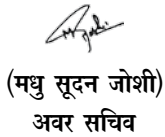 (मधु सूदन जोशी)
अवर सचिव